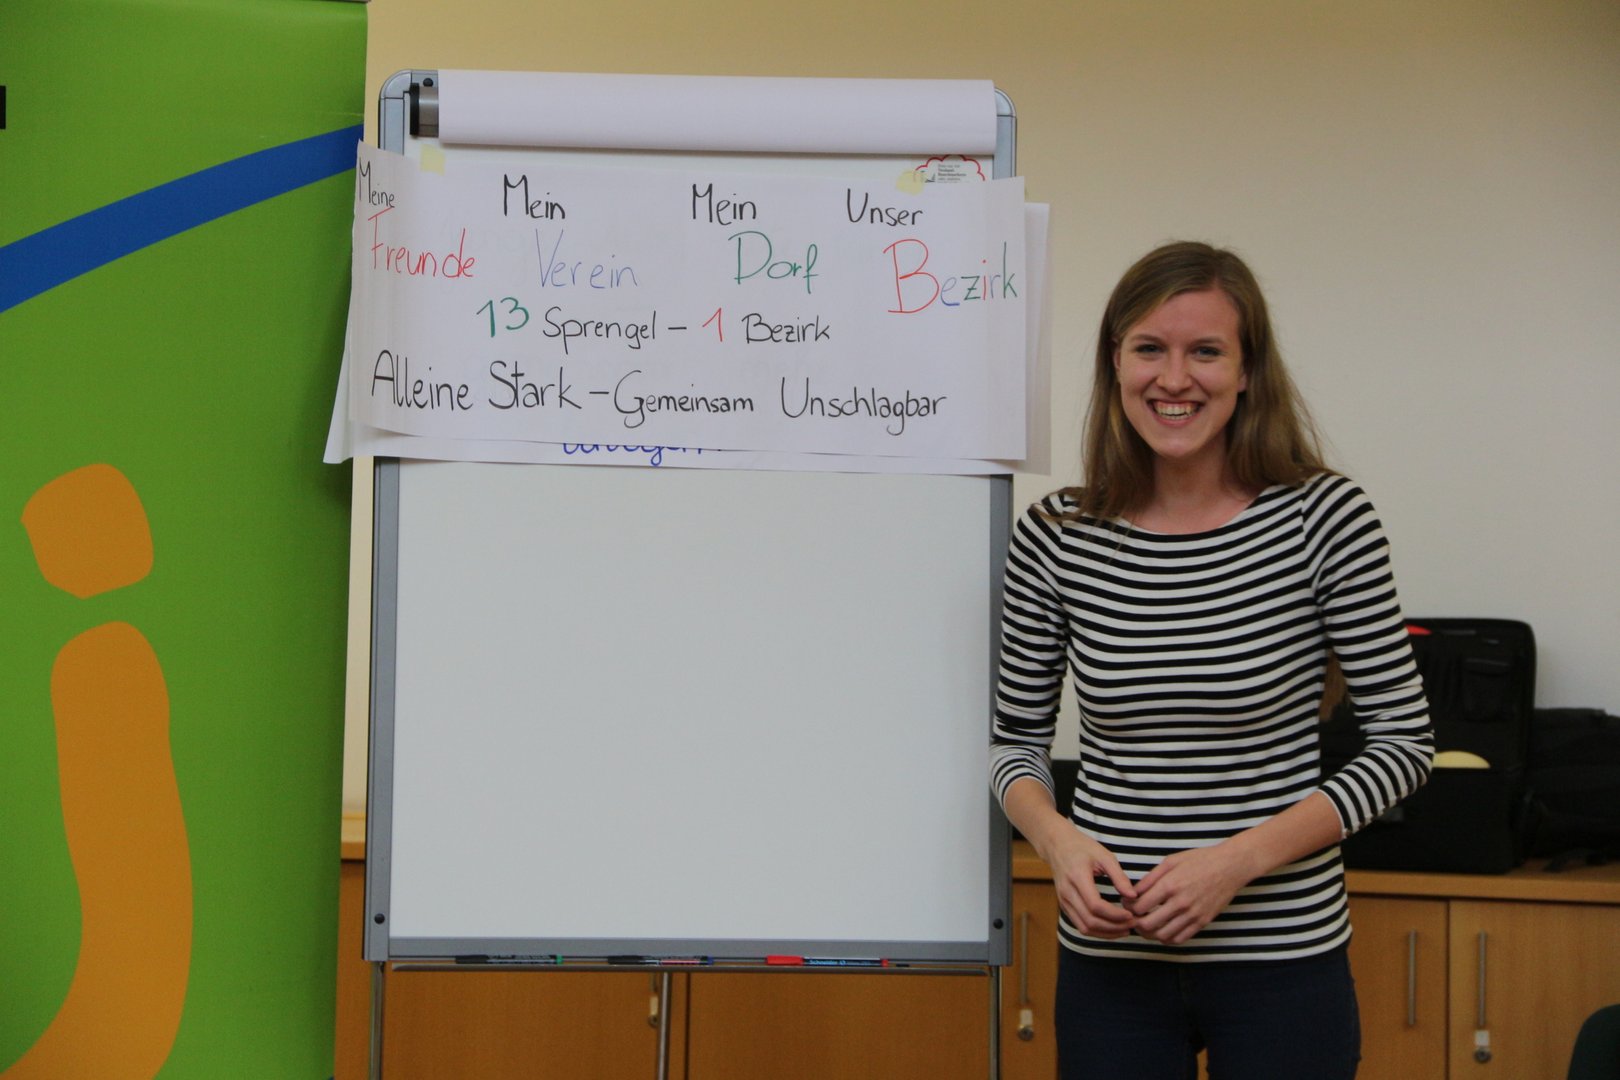 Meine Mein Mein Unser
Freunde Verein Dorf Bezirk
13 Sprengel - 1 Bezirk
Alleine Stark - Gemeinsam Unschlagbar
Schneider